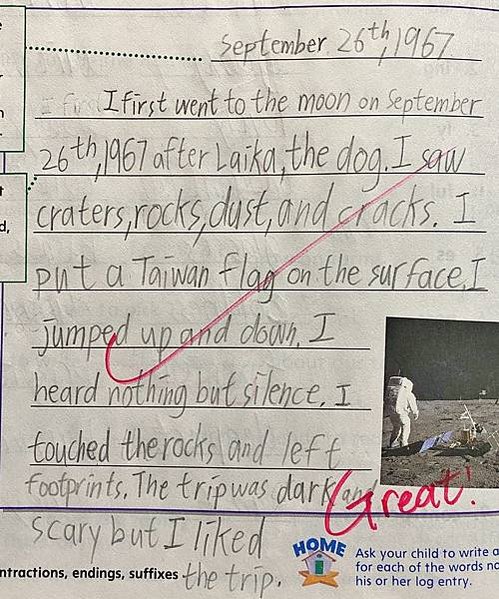 September 26th, 1967
I first went to the moon on September
26th, 1967 after Laika, the dog. I saw
craters, rocks, dust, and cracks. I
put a Taiwan flag on the surface. I
jumped up and down. I
heard nothing but silence. I
touched the rocks and left
footprints. The trip was dark and
Great!
scary but I liked
the trip.
HOME
Ask your child to write a
for each of the words
his or her log entry.
ntractions, endings, suffixes